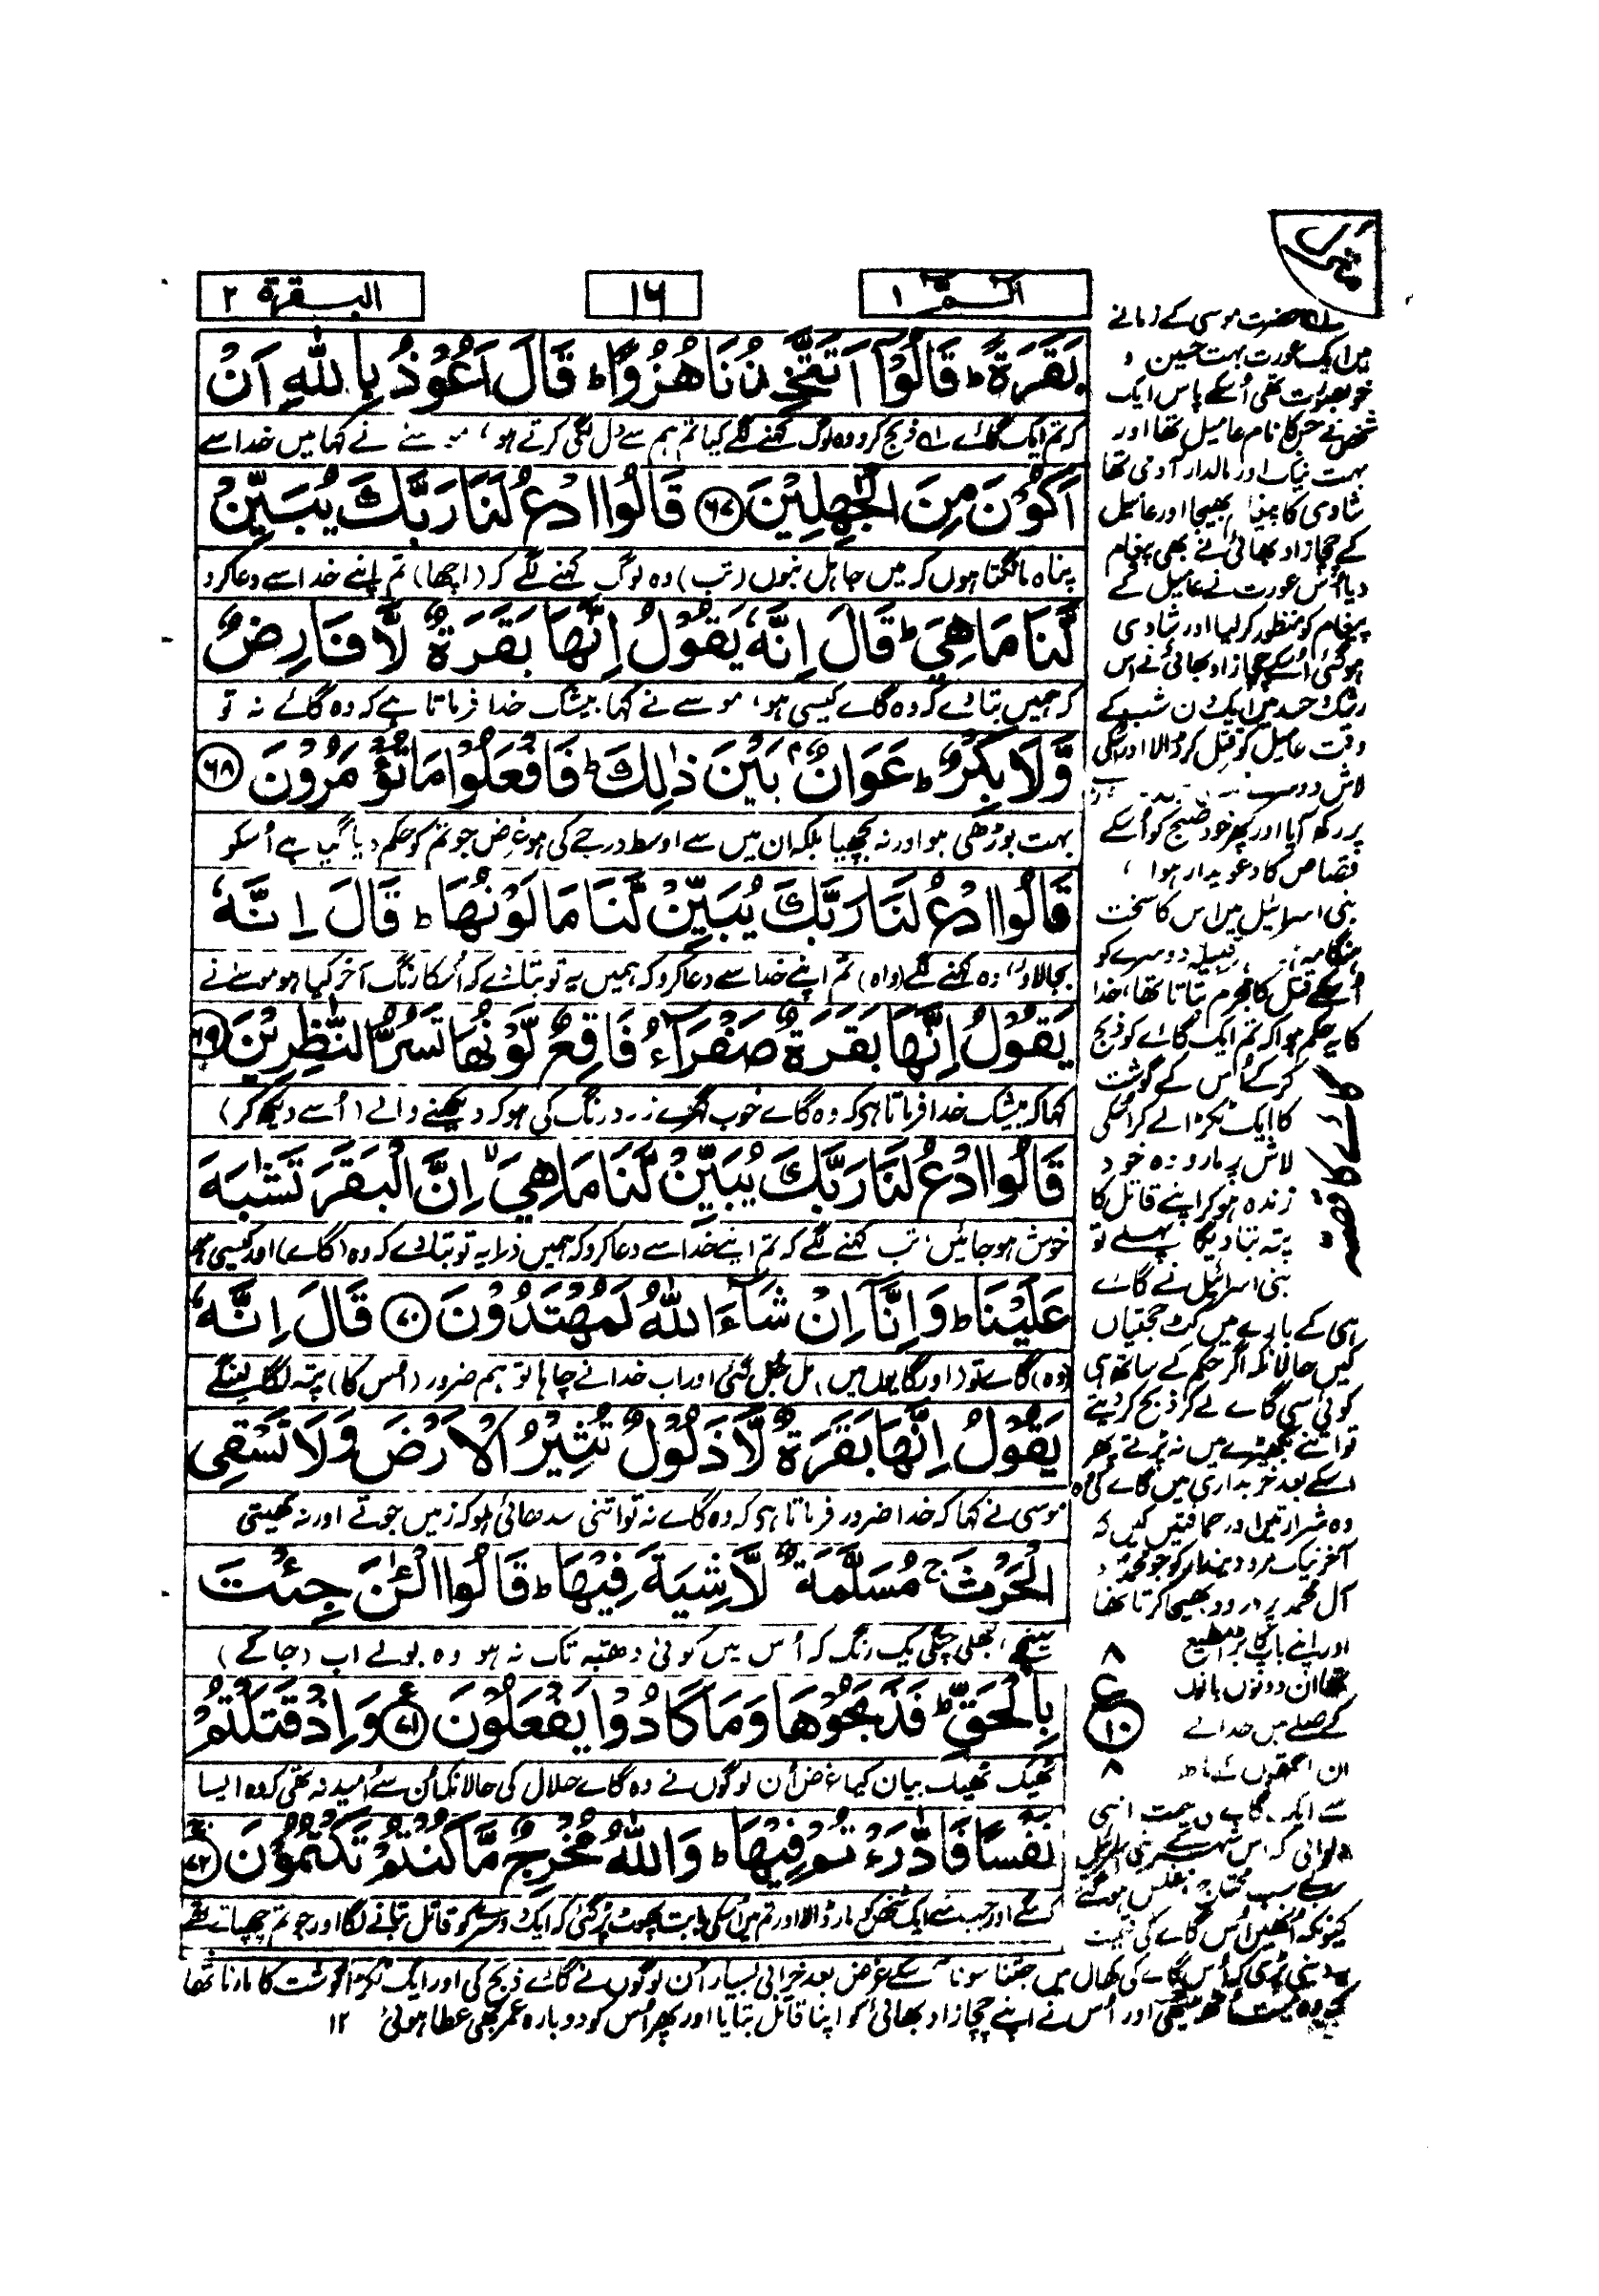 منزل
الٓمّٓ ١
١٦
البقرة ٢
بَقَرَةً ؕ قَالُوْۤا اَتَتَّخِذُنَا هُزُوًا ؕ قَالَ اَعُوْذُ بِاللّٰهِ اَنْ
کہ تم ایک گائے لے ذبح کرو وہ لوگ کہنے لگے کیا تم ہم سے دل لگی کرتے ہو، موسے نے کہا میں خدا سے
اَكُوْنَ مِنَ الْجٰهِلِيْنَ ﴿٦٧﴾ قَالُوا ادْعُ لَنَا رَبَّكَ يُبَيِّنْ
پناہ مانگتا ہوں کہ میں جاہل بنوں (تب) وہ لوگ کہنے لگے کہ (اچھا) تم اپنے خدا سے دعا کرو
لَّنَا مَا هِيَ ؕ قَالَ اِنَّهٗ يَقُوْلُ اِنَّهَا بَقَرَةٌ لَّا فَارِضٌ
کہ ہمیں بتا دے کہ وہ گائے کیسی ہو، موسے نے کہا بیشک خدا فرماتا ہے کہ وہ گائے نہ تو
وَّلَا بِكْرٌ ؕ عَوَانٌۢ بَيْنَ ذٰلِكَ ؕ فَافْعَلُوْا مَا تُؤْمَرُوْنَ ﴿٦٨﴾
بہت بوڑھی ہو اور نہ بچھیا بلکہ ان میں سے اوسط درجے کی ہو غرض جو تم کو حکم دیا گیا ہے اُسکو
قَالُوا ادْعُ لَنَا رَبَّكَ يُبَيِّنْ لَّنَا مَا لَوْنُهَا ؕ قَالَ اِنَّهٗ
بجا لاؤ، وہ کہنے لگے (واہ) تم اپنے خدا سے دعا کرو کہ ہمیں یہ تو بتا دے کہ اُسکا رنگ آخر کیا ہو موسے نے
يَقُوْلُ اِنَّهَا بَقَرَةٌ صَفْرَآءُ فَاقِعٌ لَّوْنُهَا تَسُرُّ النّٰظِرِيْنَ ﴿٦٩﴾
کہا کہ بیشک خدا فرماتا ہے کہ وہ گائے خوب گہرے زرد رنگ کی ہو کہ دیکھنے والے (اُسے دیکھ کر)
قَالُوا ادْعُ لَنَا رَبَّكَ يُبَيِّنْ لَّنَا مَا هِيَ ۙ اِنَّ الْبَقَرَ تَشٰبَهَ
خوش ہو جائیں، تب کہنے لگے کہ تم اپنے خدا سے دعا کرو کہ ہمیں ذرا یہ تو بتا دے کہ وہ (گائے) اور کیسی ہو
عَلَيْنَا ؕ وَاِنَّاۤ اِنْ شَآءَ اللّٰهُ لَمُهْتَدُوْنَ ﴿٧٠﴾ قَالَ اِنَّهٗ
(وہ) گائے تو (اور گایوں میں) مل جل گئی اور اب خدا نے چاہا تو ہم ضرور (اُس کا) پتہ لگا لینگے
يَقُوْلُ اِنَّهَا بَقَرَةٌ لَّا ذَلُوْلٌ تُثِيْرُ الْاَرْضَ وَلَا تَسْقِى
موسی نے کہا کہ خدا ضرور فرماتا ہے کہ وہ گائے نہ تو اتنی سدھائی ہو کہ زمیں جوتے اور نہ کھیتی
الْحَرْثَ ۚ مُسَلَّمَةٌ لَّا شِيَةَ فِيْهَا ؕ قَالُوا الْـٰٔنَ جِئْتَ
سینچے، بھلی چنگی یک رنگ کہ اُس میں کوئی دھبّہ تک نہ ہو وہ بولے اب (جا کے)
بِالْحَقِّ ؕ فَذَبَحُوْهَا وَمَا كَادُوْا يَفْعَلُوْنَ ﴿٧١﴾ وَاِذْ قَتَلْتُمْ
ٹھیک ٹھیک بیان کیا غرض اُن لوگوں نے وہ گائے حلال کی حالانکہ اُن سے اُمید نہ تھی کہ وہ ایسا
نَفْسًا فَادّٰرَءْتُمْ فِيْهَا ؕ وَاللّٰهُ مُخْرِجٌ مَّا كُنْتُمْ تَكْتُمُوْنَ ﴿٧٢﴾
کرینگے اور جب تم نے ایک شخص کو مار ڈالا اور تم میں اُسکی بابت پھوٹ پڑ گئی کہ ایک دوسرے کو قاتل بتانے لگا اور جو تم چھپاتے تھے
لے حضرت موسی کے زمانے
میں ایک عورت بہت حسین و
خوبصورت تھی اُسکے پاس ایک
شخص نے جس کا نام عامیل تھا اور
بہت نیک اور مالدار آدمی تھا
شادی کا پیغام بھیجا اور عامیل
کے چچا زاد بھائی نے بھی پیغام
دیا اُس عورت نے عامیل کے
پیغام کو منظور کر لیا اور شادی
ہو گئی اُسکے چچا زاد بھائی نے اس
رشک حسد میں ایک دن شب کے
وقت عامیل کو قتل کر ڈالا اور اُسکی
لاش دوسرے
پر رکھ آیا اور پھر خود صبح کو اُسکے
قصاص کا دعویدار ہوا،
بنی اسرائیل میں اس کا سخت
ہنگامہ قبیلہ دوسرے کو
اُسکے قتل کا مجرم بتاتا تھا، خدا
کا یہ حکم ہوا کہ تم ایک گائے کو ذبح
کر کے اُس کے گوشت
کا ایک ٹکڑا لے کر اُسکی
لاش پر مارو وہ خود
زندہ ہو کر اپنے قاتل کا
پتہ بتا دیگا پہلے تو
بنی اسرائیل نے گائے
گائے کا قصہ
ہی کے بارے میں کٹ حجتیاں
کیں حالانکہ اگر حکم کے ساتھ ہی
کوئی سی گائے لے کر ذبح کر دیتے
تو اتنے بکھیڑے میں نہ پڑتے پھر
اسکے بعد خریداری میں گائے کی وہ
وہ شرارتیں اور حماقتیں کیں کہ
آخر نیک مرد دیندار کو جو محمدؐ و
آل محمد پر درود بھیجا کرتا تھا
اور اپنے باپ کا بڑا مطیع
تھا ان دونوں باتوں
کے صلے میں خدا نے
ان احمقوں کے ہاتھ
سے ایک گائے کی قیمت اتنی
دلوائی کہ اس شہر کے بنی اسرائیل
سب کے سب محتاج مفلس ہو گئے
کیونکہ اُنھیں اُس گائے کی قیمت
٨
ع
١٠
٨
یہ دینی پڑی کہ اُس گائے کی کھال میں جتنا سونا سکے غرض بعد خرابی بسیار اُن لوگوں نے گائے ذبح کی اور ایک ٹکڑا گوشت کا مارنا تھا
کہ وہ میت اُٹھ بیٹھی اور اُس نے اپنے چچا زاد بھائی کو اپنا قاتل بتایا اور پھر اُس کو دوبارہ عمر بھی عطا ہوئی ١٢